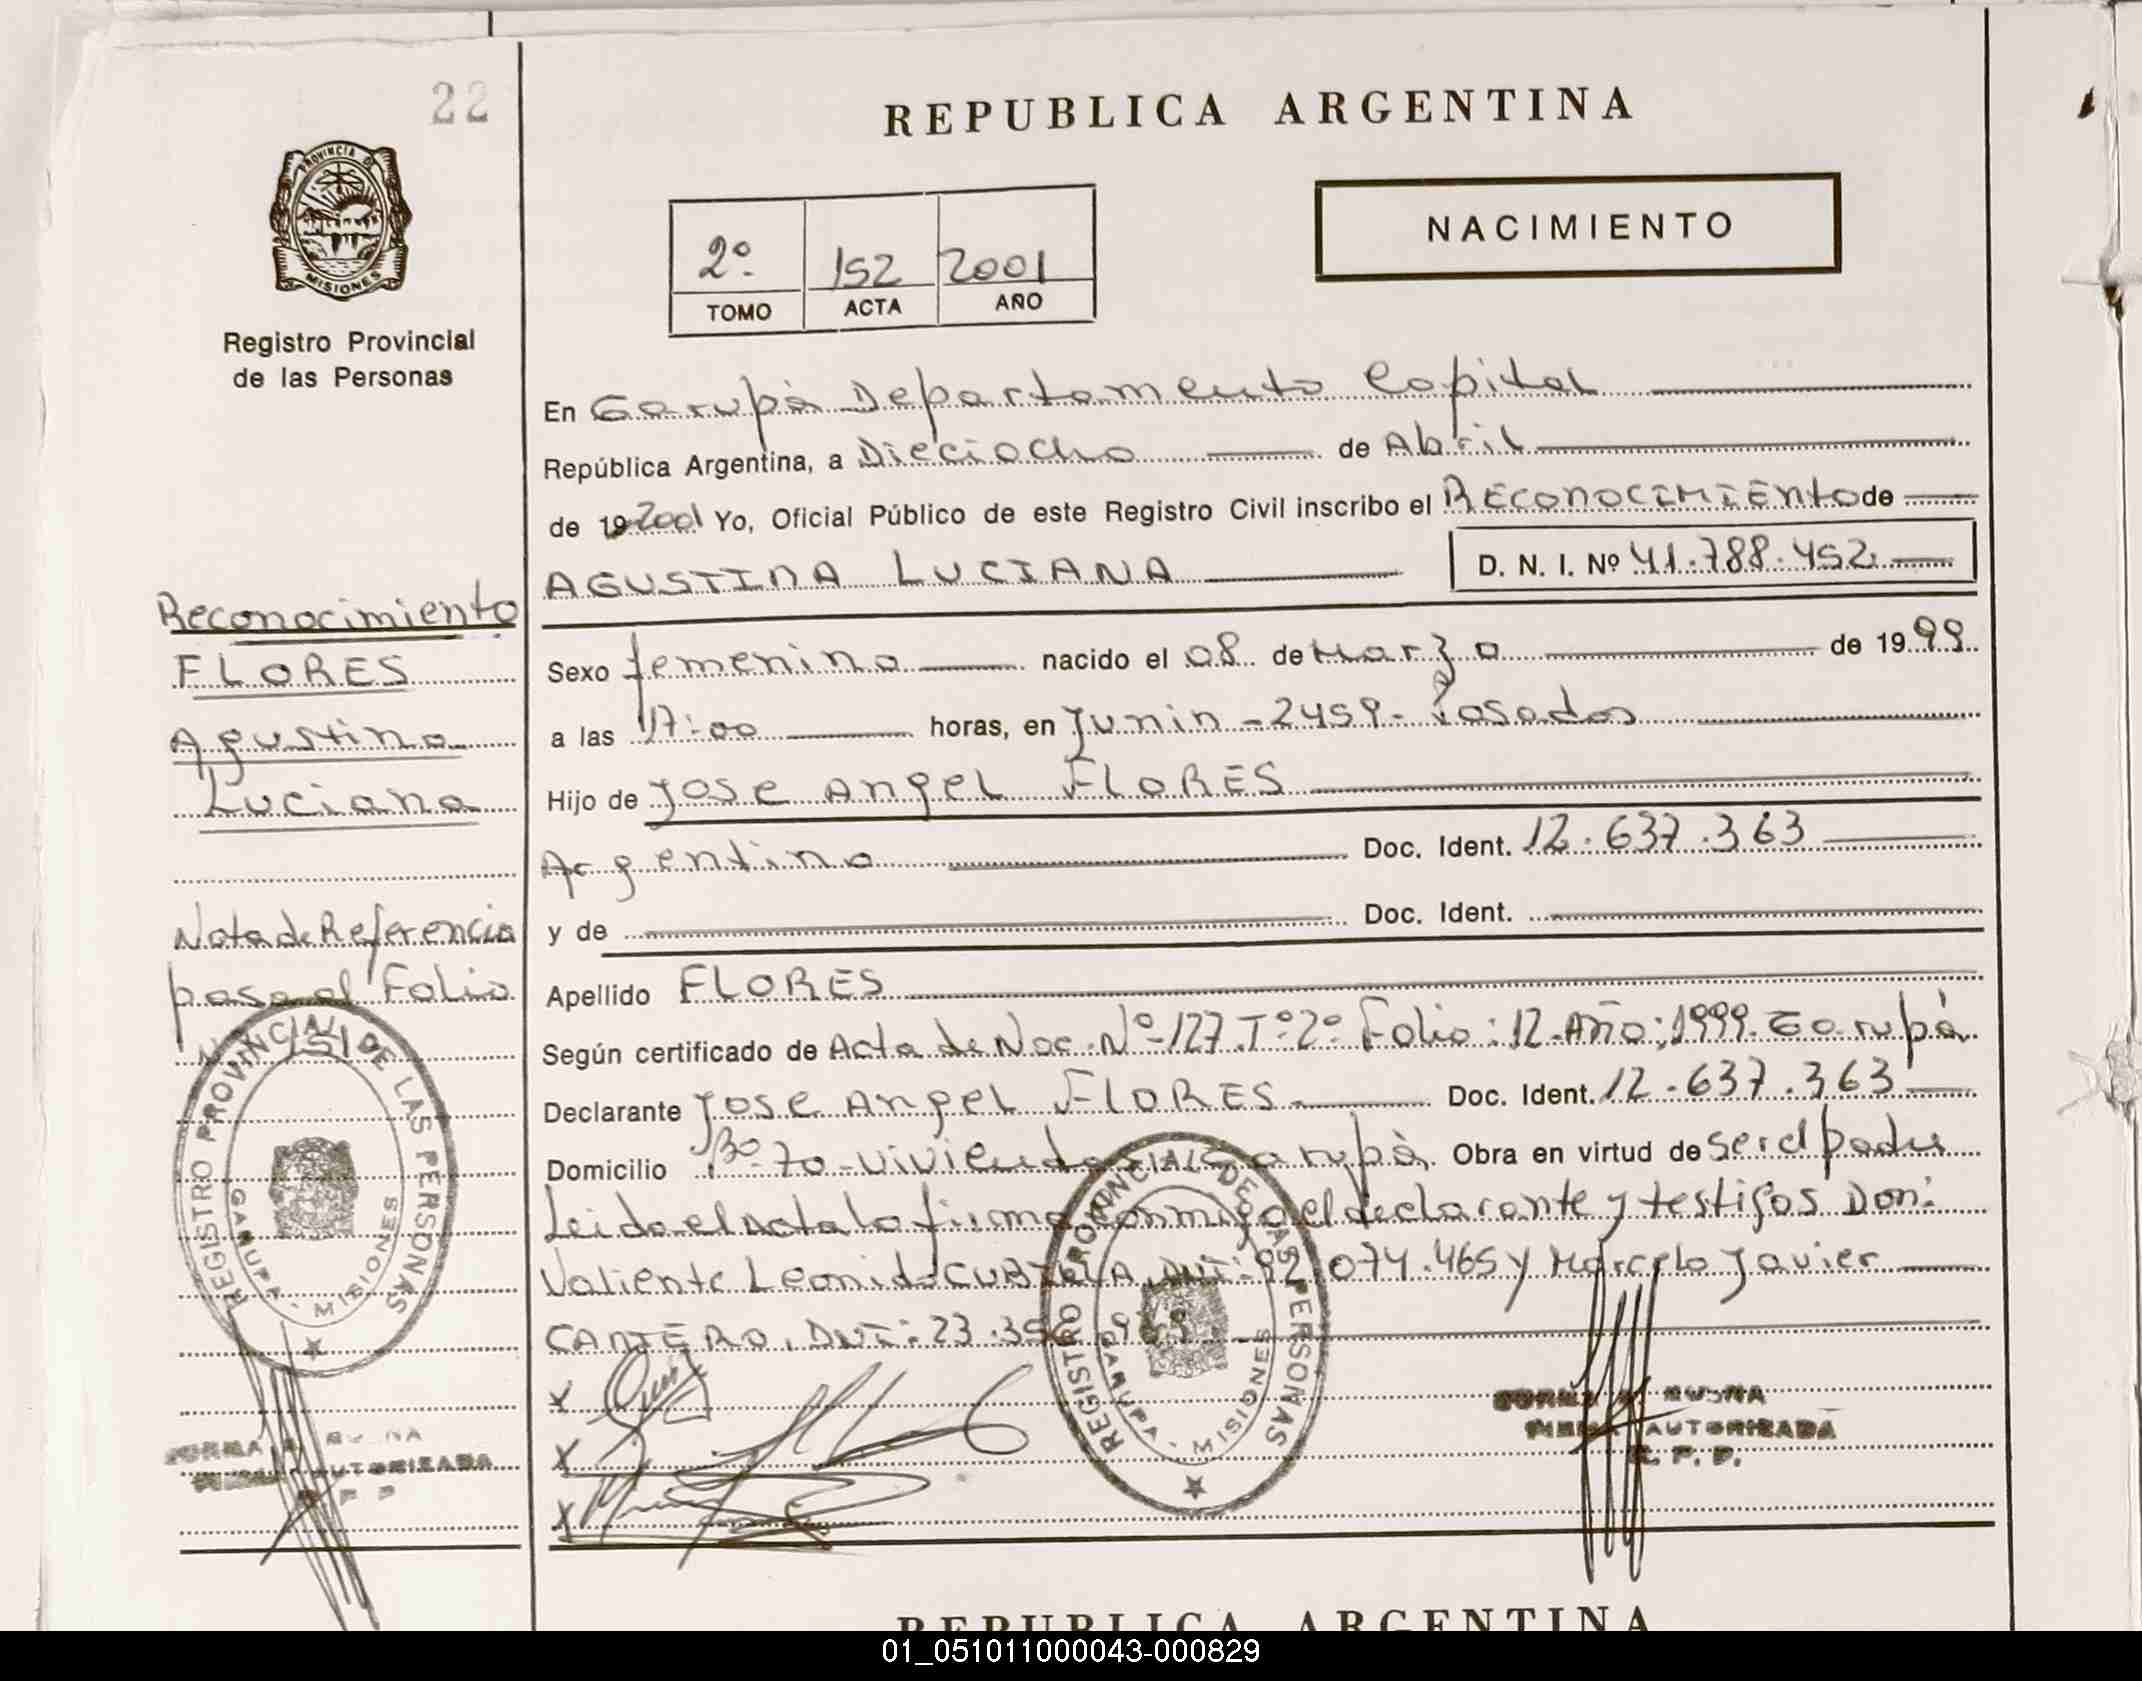 22
REPUBLICA ARGENTINA
PROVINCIA DE
MISIONES
Registro Provincial
de las Personas
2º
152
2001
TOMO
ACTA
AÑO
NACIMIENTO
En Garupà Departamento Capital
República Argentina, a Dieciocho de Abril
de 19 2001 Yo, Oficial Público de este Registro Civil inscribo el RECONOCIMIENTO de
AGUSTINA LUCIANA
D. N. I. Nº 41.788.452.
Sexo femenino nacido el 08 de Marzo de 1999
a las 17:00 horas, en Junin - 2459 - Posadas
Hijo de Jose Angel FLORES
Argentino Doc. Ident. 12.637.363
y de Doc. Ident.
Apellido FLORES
Según certificado de Acta de Nac. Nº 127. Tº 2º Folio: 12. Año: 1999. Garupà
Declarante Jose Angel FLORES. Doc. Ident. 12.637.363
Domicilio Bº 70 - viviendas Garupà. Obra en virtud de ser el padre
Leida el Acta la firma conmigo el declarante y testigos Don:
Valiente Leonida DNI: 92.074.465 y Marcelo Javier
CANTERO. DNI: 23.
x
x
x
Reconocimiento
FLORES
Agustina
Luciana
Nota de Referencia
pasa al Folio
Nº 151
REGISTRO PROVINCIAL DE LAS PERSONAS
GARUPA - MISIONES
REGISTRO PROVINCIAL DE LAS PERSONAS
GARUPA - MISIONES
FIRMA AUTORIZADA
R. P. P.
FIRMA AUTORIZADA
R. P. P.
REPUBLICA ARGENTINA
01_051011000043-000829